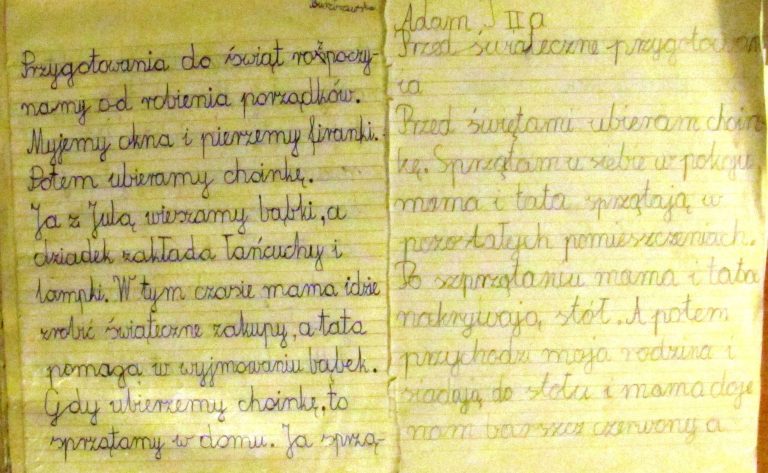 Przygotowania do świąt rozpoczy-
namy od robienia porządków.
Myjemy okna i pierzemy firanki.
Potem ubieramy choinkę.
Ja z Julą wieszamy bąbki, a
dziadek zakłada łańcuchy i
lampki. W tym czasie mama idzie
zrobić świąteczne zakupy, a tata
pomaga w wyjmowaniu bąbek.
Gdy ubierzemy choinkę, to
sprzątamy w domu. Ja sprzą-
Adam II a
Przed świąteczne przygotowan
ia
Przed świętami ubieram choin
kę. Sprzątam u siebie w pokoju
mama i tata sprzątają w
pozostałych pomieszczeniach.
Po szprzątaniu mama i tata
nakrywają stół. A potem
przychodzi moja rodzina i
siadają do stołu i mama daje
nam barszcz czerwony a